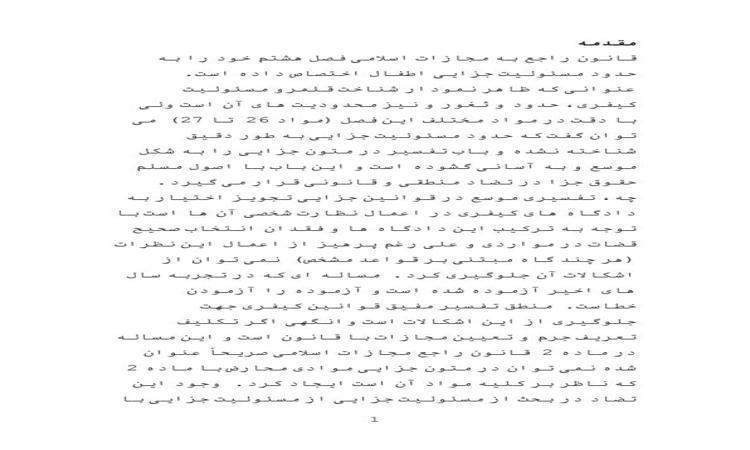 مقدمه
قانون راجع به مجازات اسلامی فصل هشتم خود را به
حدود مسئولیت جزایی اطفال اختصاص داده است.
عنوانی که ظاهر نمودار شناخت قلمرو مسئولیت
کیفری، حدود و ثغور و نیز محدودیت های آن است ولی
با دقت در مواد مختلف این فصل (مواد 26 تا 27) می
توان گفت که حدود مسئولیت جزایی به طور دقیق
شناخته نشده و باب تفسیر در متون جزایی را به شکل
موسع و به آسانی گشوده است و این باب با اصول مسلم
حقوق جزا در تضاد منطقی و قانونی قرار می گیرد.
چه، تفسیری موسع در قوانین جزایی تجویز اختیار به
دادگاه های کیفری در اعمال نظارت شخصی آن ها است با
توجه به ترکیب این دادگاه ها و فقدان انتخاب صحیح
قضات در مواردی و علی رغم پرهیز از اعمال این نظرات
(هر چند گاه مبتنی بر قواعد مشخص) نمی توان از
اشکالات آن جلوگیری کرد. مساله ای که در تجربه سال
های اخیر آزموده شده است و آزموده را آزمودن
خطاست. منطق تفسیر مفیق قوانین کیفری جهت
جلوگیری از این اشکالات است وانگهی اگر تکلیف
تعریف جرم و تعیین مجازات با قانون است و این مساله
در ماده 2 قانون راجع مجازات اسلامی صریحاً عنوان
شده نمی توان در متون جزایی موادی محارض با ماده 2
که ناظر بر کلیه مواد آن است ایجاد کرد. وجود این
تضاد در بحث از مسئولیت جزایی از مسئولیت جزایی با
1